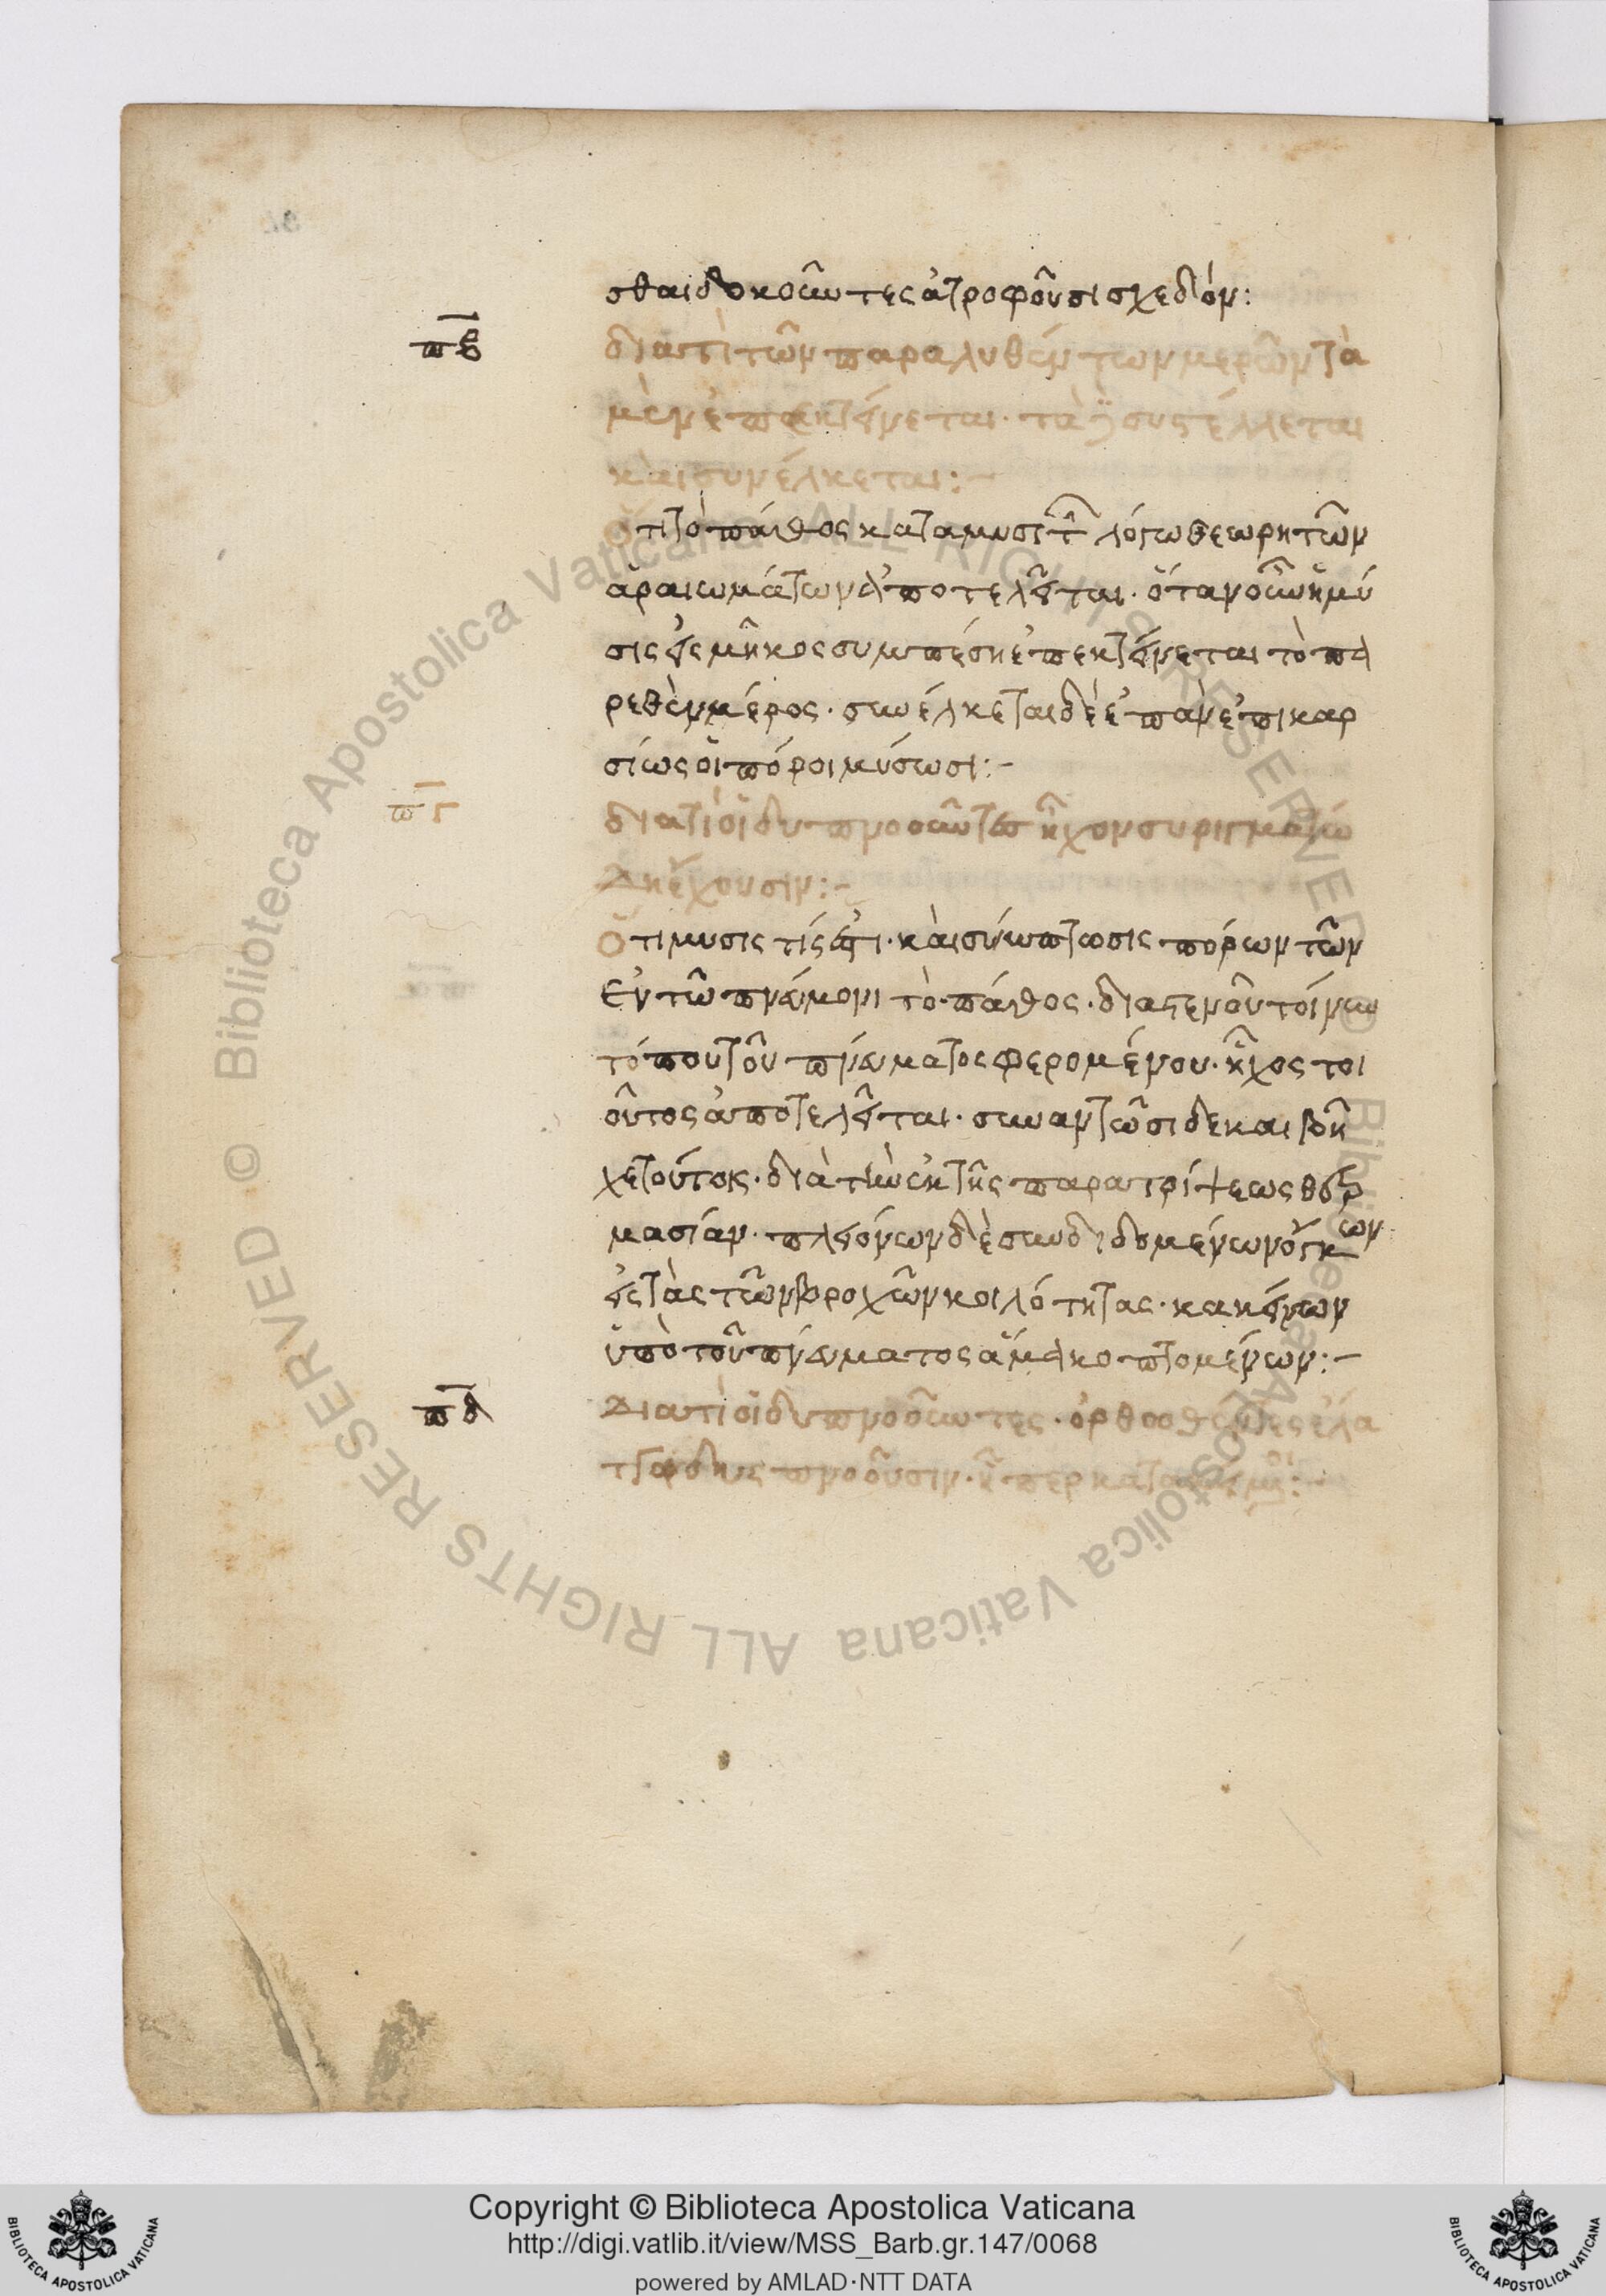 σθαι δοκοῦντες ἀτροφοῦσι σχεδόν:
πβ
διατί τῶν παραλυθέντων μερῶν τὰ
μὲν ἐπεκτείνεται· τὰ δὲ συστέλλεται
καὶ συνέλκεται:-
Ὅτι τὸ πάθος κατὰ μύσιν τῶν λόγω θεωρητῶν
ἀραιωμάτων ἀποτελεῖται· ὅταν οὖν ἡ μύ
σις εἰς μῆκος συμπέση ἐπεκτείνεται τὸ πα
ρεθὲν μέρος· συνέλκεται δὲ ἐπὰν ἐπικαρ
σίως οἱ πόροι μύσωσι:-
πγ
διατί οἱ δυσπνοοῦντες ἦχον συριγματώ
δη ἔχουσιν:-
Ὅτι μυσις τίς ἐστι· καὶ σύμπτωσις πόρων τῶν
ἐν τῶ πνεύμονι τὸ πάθος· διὰ στενοῦ τοίνυν
τόπου τοῦ πνεύματος φερομένου· ἦχος τοι
οῦτος ἀποτελεῖται· συναντῶσι δὲ καὶ βῆ
χε τούτοις· διὰ τὴν ἐκ τῆς παρατρίψεως θερ
μασίαν· πλειόνων δὲ συνδιδομένων ὄγκων
εἰς τὰς τῶν βρογχῶν κοιλότητας· κακείνων
ὑπὸ τοῦ πνεύματος ἀνακοπτομένων:-
πδ
Διατί οἱ δυσπνοοῦντες· ὀρθοσθέντες ἐλα
πνοοῦσιν· ἤπερ
Copyright © Biblioteca Apostolica Vaticana
http://digi.vatlib.it/view/MSS_Barb.gr.147/0068
powered by AMLAD·NTT DATA
BIBLIOTECA APOSTOLICA VATICANA
BIBLIOTECA APOSTOLICA VATICANA
© Biblioteca Apostolica Vaticana ALL RIGHTS RESERVED
© Biblioteca Apostolica Vaticana ALL RIGHTS RESERVED